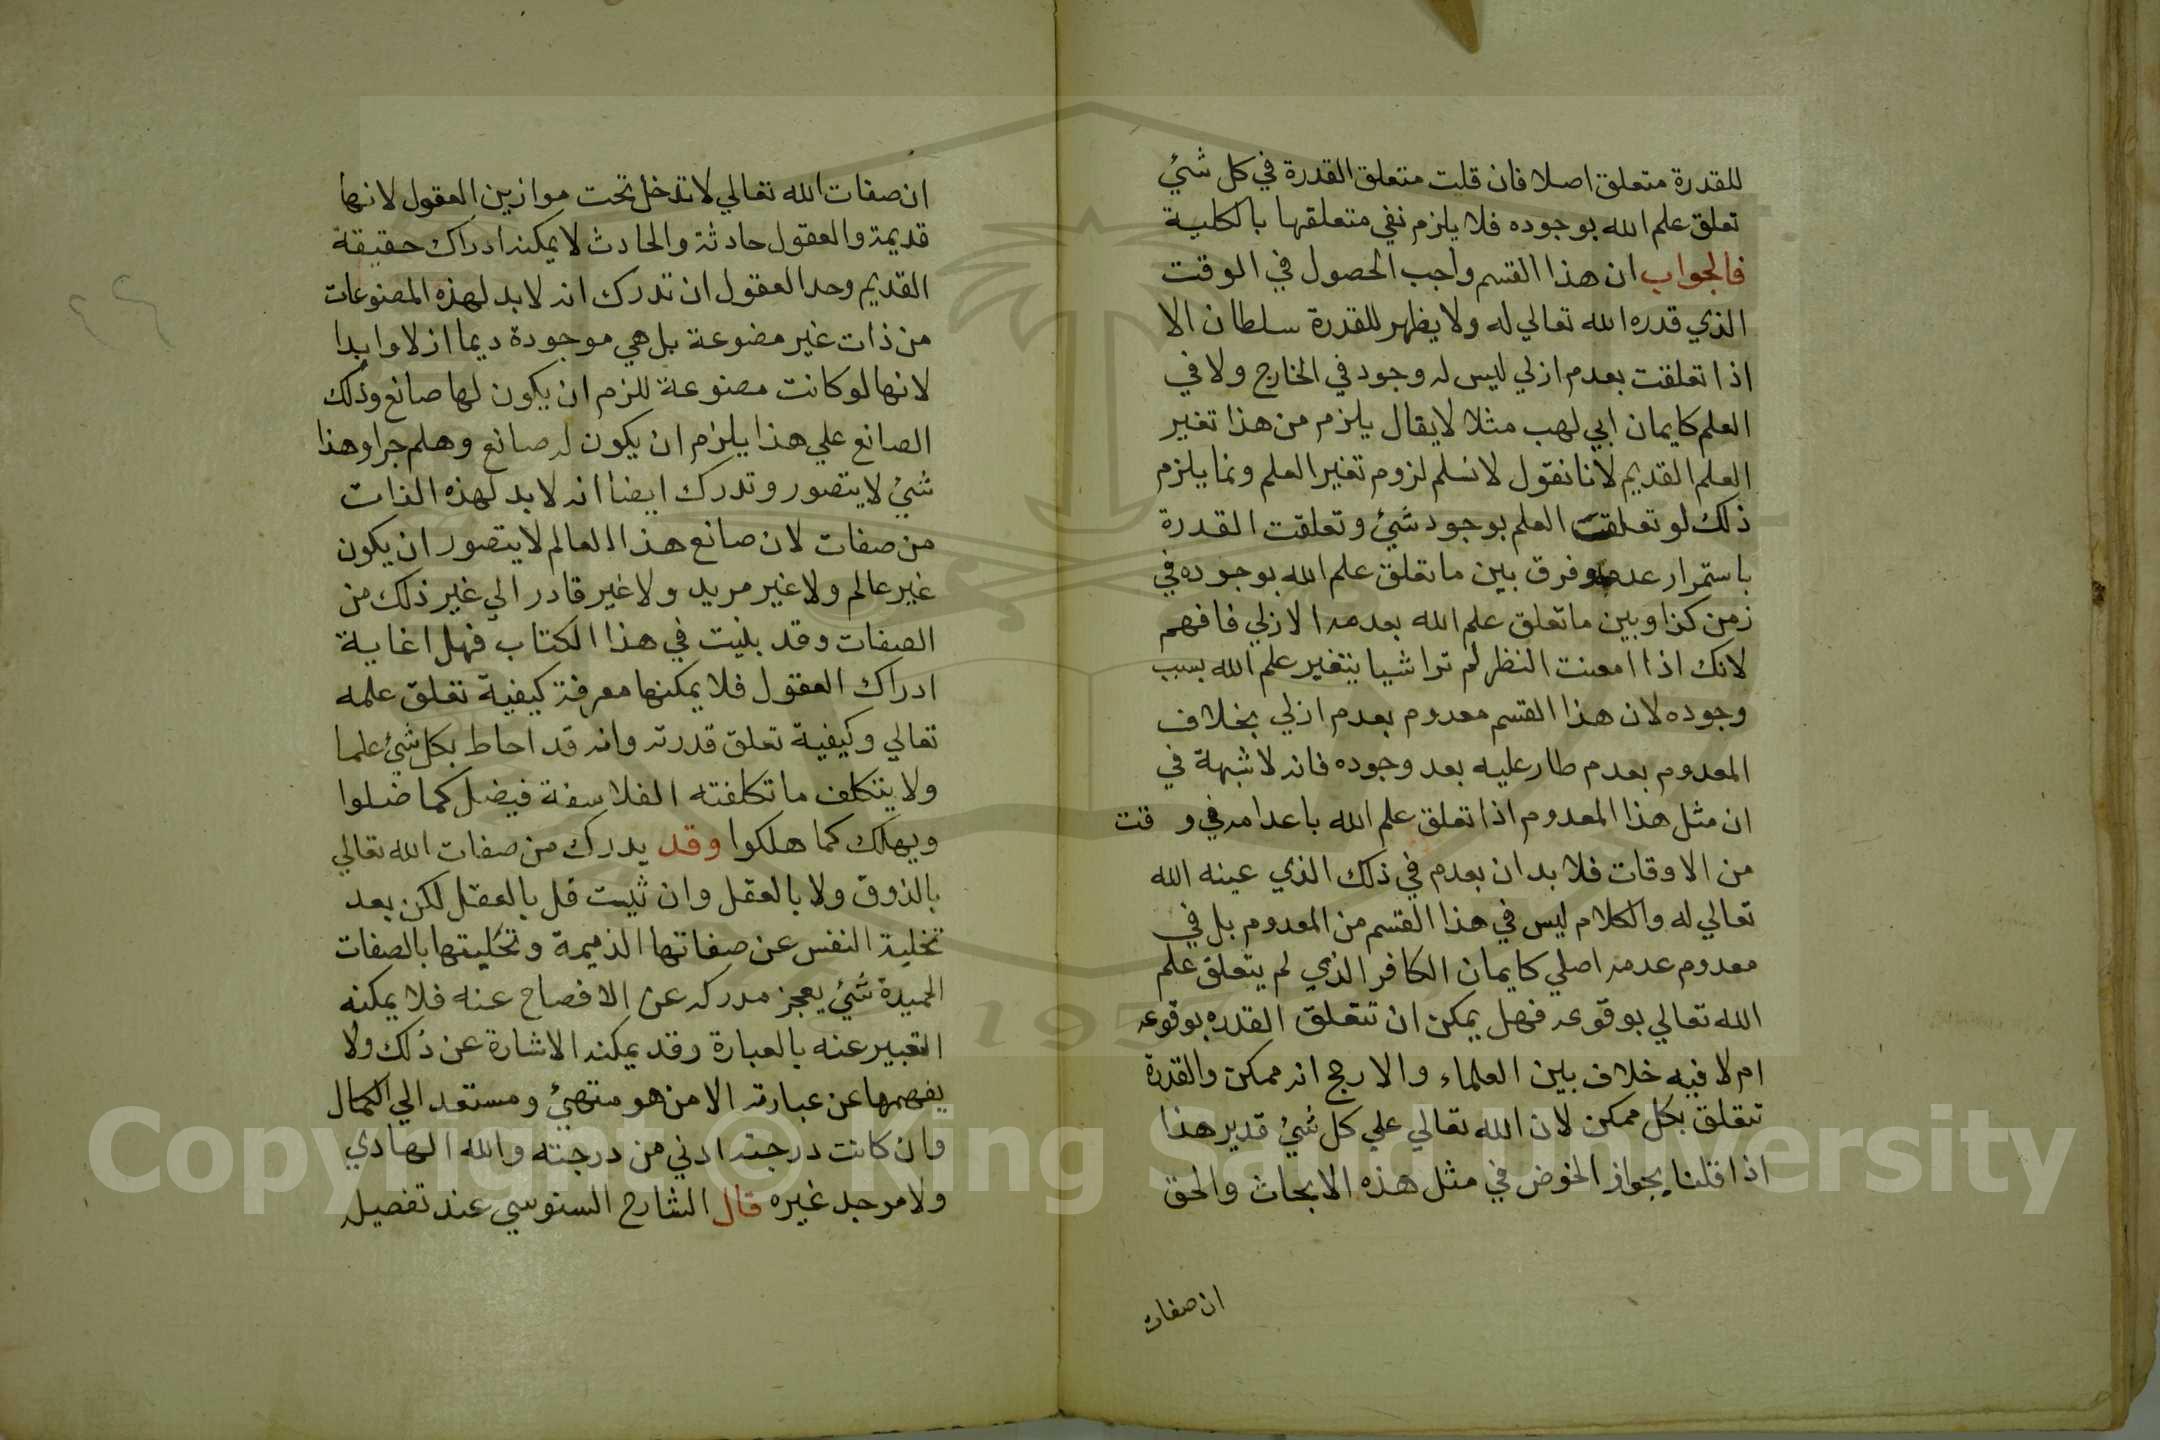 للقدرة متعلق اصلا فان قلت متعلق القدرة في كل شيئ
تعلق علم الله بوجوده فلا يلزم نفي متعلقها بالكلية
فالجواب ان هذا القسم واجب الحصول في الوقت
الذي قدره الله تعالي له ولا يظهر للقدرة سلطان الا
اذا تعلقت بعدم ازلي ليس له وجود في الخارج ولا في
العلم كايمان ابي لهب مثلا لا يقال يلزم من هذا تغير
العلم القديم لانا نقول لا نسلم لزوم تغير العلم ونما يلزم
ذلك لو تعلقت العلم بوجود شيئ وتعلقت القدرة
باستمرار عدمه وفرق بين ما تعلق علم الله بوجوده في
زمن كذا وبين ما تعلق علم الله بعدمه الازلي فافهم
لانك اذا امعنت النظر لم ترا شيا يتغير علم الله بسبب
وجوده لان هذا القسم معدوم بعدم ازلي بخلاف
المعدوم بعدم طار عليه بعد وجوده فانه لا شبهة في
ان مثل هذا المعدوم اذا تعلق علم الله باعدامه في وقت
من الاوقات فلا بد ان بعدم في ذلك الذي عينه الله
تعالي له والكلام ليس في هذا القسم من المعدوم بل في
معدوم عدمه اصلي كايمان الكافر الذي لم يتعلق علم
الله تعالي بوقوعه فهل يمكن ان تتعلق القدره بوقوعه
ام لا فيه خلاف بين العلماء والارجح انه ممكن والقدرة
تتعلق بكل ممكن لان الله تعالي علي كل شيئ قدير هذا
اذا قلنا بجواز الخوض في مثل هذه الابحاث والحق
ان صفات
ان صفات الله تعالي لا تدخل تحت موازين العقول لانها
قديمة والعقول حادثة والحادث لا يمكنه ادراك حقيقة
القديم وحد العقول ان تدرك انه لا بد لهذه المصنوعات
من ذات غير مضوعة بل هي موجودة ديما ازلا وابدا
لانها لو كانت مصنوعة للزم ان يكون لها صانع وذلك
الصانع علي هذا يلزم ان يكون له صانع وهلم جرا وهذا
شيئ لا يتصور وتدرك ايضا انه لا بد لهذه الذات
من صفات لان صانع هذا العالم لا يتصور ان يكون
غير عالم ولا غير مريد ولا غير قادر الي غير ذلك من
الصفات وقد بلنيت في هذا الكتاب فهل اغاية
ادراك العقول فلا يمكنها معرفة كيفية تعلق علمه
تعالي وكيفية تعلق قدرته وانه قد احاط بكل شيئ علما
ولا يتكلف ما تكلفته الفلاسفة فيضل كما ضلوا
ويهلك كما هلكوا وقد يدرك من صفات الله تعالي
بالذوق ولا بالعقل وان ثبت قل بالعقل لكن بعد
تخلية النفس عن صفاتها الذميمة وتحليتها بالصفات
الحميدة شيئ يعجز مدركه عن الافصاح عنه فلا يمكنه
التعبير عنه بالعبارة وقد يمكنه الاشارة عن ذلك ولا
يفهمها عن عبارته الا من هو متهيئ ومستعد الي الكمال
وان كانت درجته ادني من درجته والله الهادي
ولا مرجد غيره قال الشارح السنوسي عند تفصيله
Copyright © King Saud University